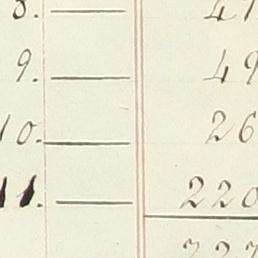 8. — 47
9. — 49
10. — 26
11. — 220